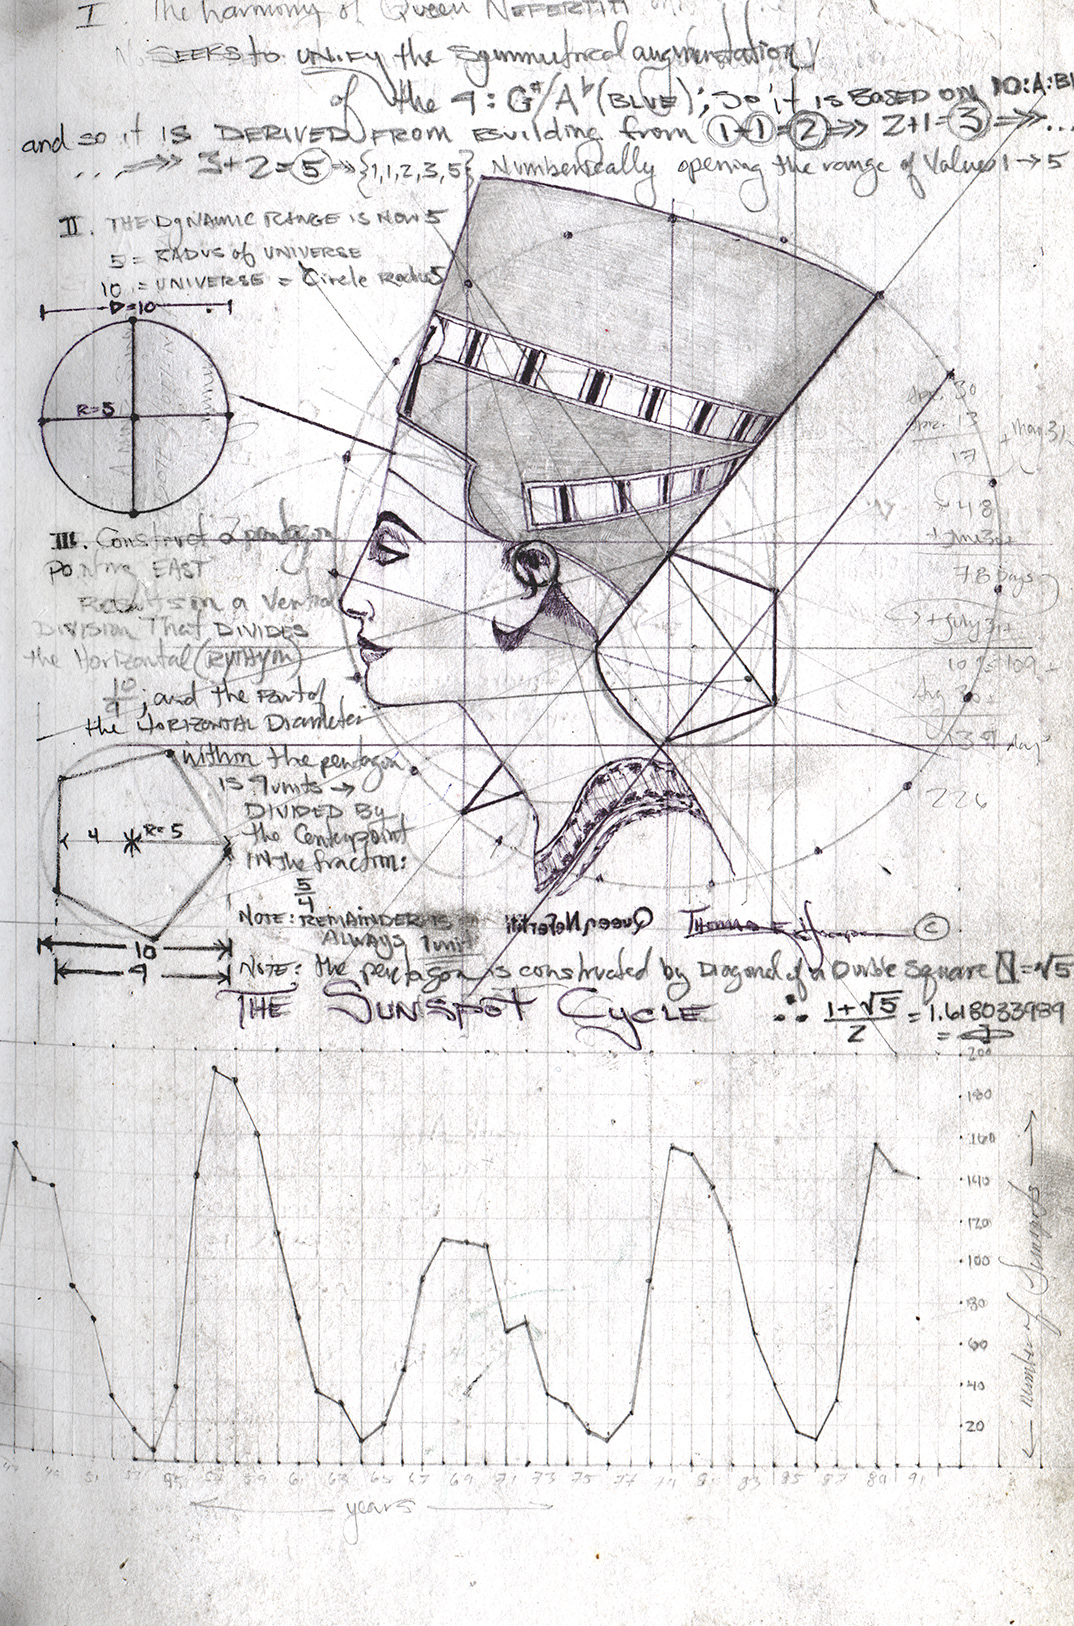 I The harmony of Queen NEFERTITI
SEEKS to UNIFY the symmetrical augmentation
of the 9: G#/Ab (BLUE); So it IS BASED ON 10:A:Bb
and so it IS DERIVED FROM Building from 1+1=2 ⇒ 2+1=3 ⇒ ...
... ⇒ 3+2=5 ⇒ {1,1,2,3,5} Numberically opening the range of values 1→5
II. THE DYNAMIC RANGE IS NOW 5
5 = RADIUS of UNIVERSE
10 = UNIVERSE = Circle Radius 5
D=10
R=5
III. Construct a pentagon
POINTING EAST
Results in a Vertical
DIVISION That DIVIDES
the Horizontal (RHYTHYM)
10/9; and the PART of
the HORIZONTAL Diameter
within the pentagon
IS 9 units →
DIVIDED BY
the Centerpoint
IN the fraction:
5/4
NOTE: REMAINDER IS
ALWAYS 1 unit
4 R=5
10
9
30
13
17
48
78 days
109
139 days
226
Queen Nefertiti
Thomas
©
NOTE: the pentagon is constructed by Diagonal of a Double Square = √5
THE SUNSPOT CYCLE ∴ (1+√5)/2 = 1.618033989
= Φ
200
180
160
140
120
100
80
60
40
20
← number of Sunspots →
47 49 51 57 59 61 63 65 67 69 71 73 75 77 79 81 83 85 87 89 91
← years →